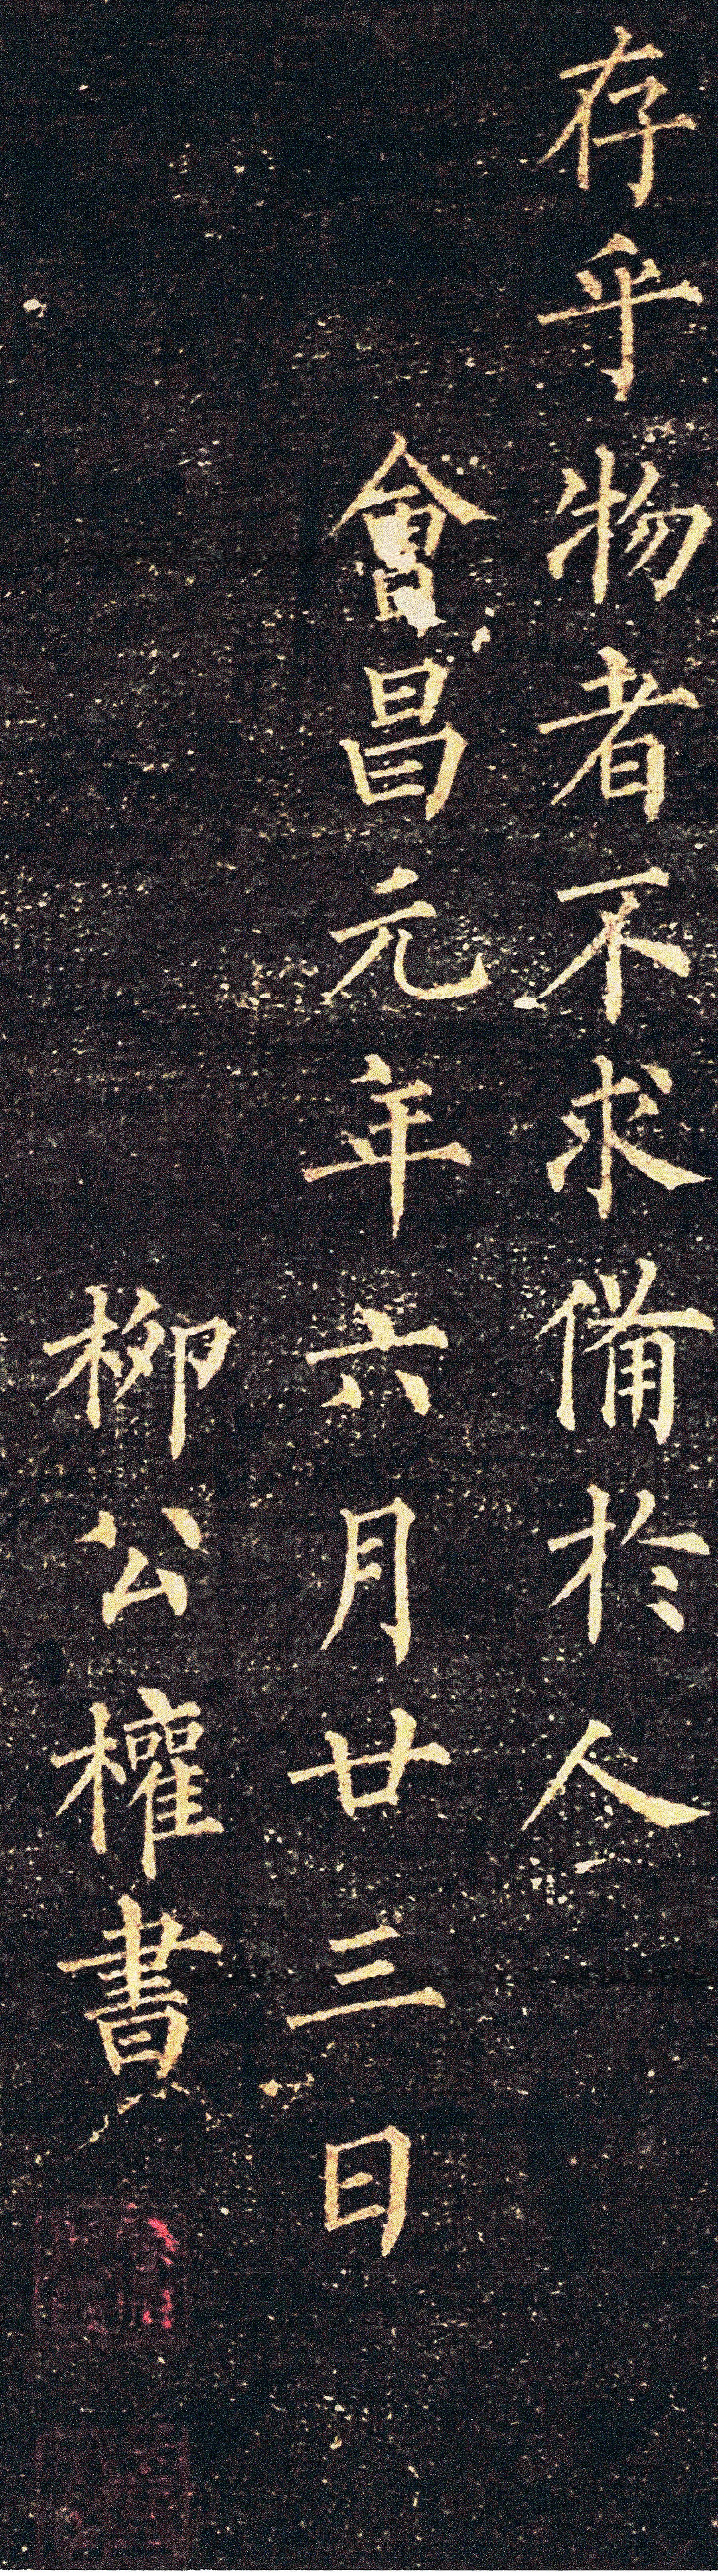 存乎物者不求備於人
會昌元年六月廿三日
柳公權書